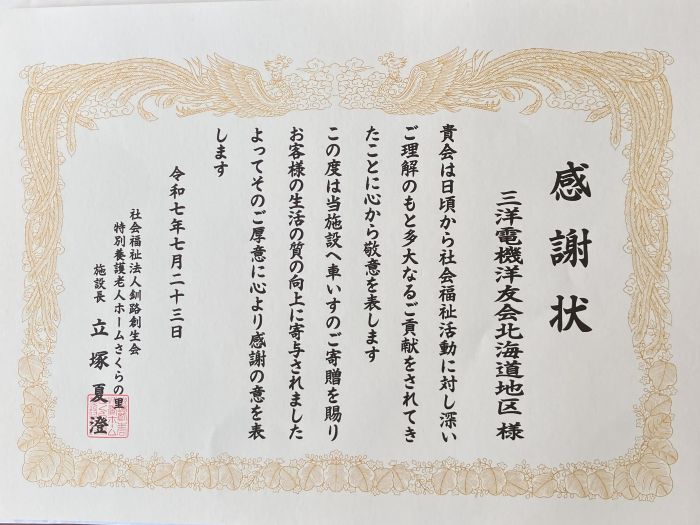 感謝状
三洋電機洋友会北海道地区 様
貴会は日頃から社会福祉活動に対し深い
ご理解のもと多大なるご貢献をされてき
たことに心から敬意を表します
この度は当施設へ車いすのご寄贈を賜り
お客様の生活の質の向上に寄与されました
よってそのご厚意に心より感謝の意を表
します
令和七年七月二十三日
社会福祉法人釧路創生会
特別養護老人ホームさくらの里
施設長 立塚夏澄